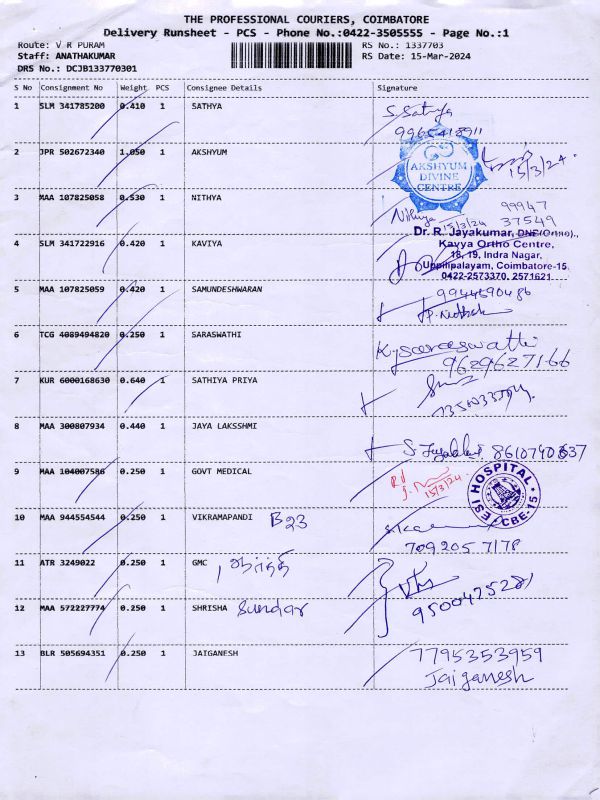 THE PROFESSIONAL COURIERS, COIMBATORE
Delivery Runsheet - PCS - Phone No.:0422-3505555 - Page No.:1
Route: V R PURAM RS No.: 1337703
Staff: ANATHAKUMAR RS Date: 15-Mar-2024
DRS No.: DCJB133770301
S No Consignment No Weight PCS Consignee Details Signature
1 SLM 341785200 0.410 1 SATHYA S. Sathya
2 JPR 502672340 1.050 1 AKSHYUM 15/3/24
AKSHYUM
DIVINE
CENTRE
3 MAA 107825058 0.530 1 NITHYA Nithya 15/3/24 99947
37549
4 SLM 341722916 0.420 1 KAVIYA
Dr. R. Jayakumar, DNB(Ortho).,
Kavya Ortho Centre,
18, 19, Indra Nagar,
Uppilipalayam, Coimbatore-15.
0422-2573370, 2571621
5 MAA 107825059 0.420 1 SAMUNDESHWARAN 9944690486
6 TCG 4089494820 0.250 1 SARASWATHI K. Saraswathi
9629627166
7 KUR 6000168630 0.640 1 SATHIYA PRIYA
8 MAA 300807934 0.440 1 JAYA LAKSSHMI
9 MAA 104007586 0.250 1 GOVT MEDICAL 15/3/24
ESI HOSPITAL
CBE-15
10 MAA 944554544 0.250 1 VIKRAMAPANDI B23
709205 7178
11 ATR 3249022 0.250 1 GMC
9500425281
12 MAA 572227774 0.250 1 SHRISHA Sundar
13 BLR 505694351 0.250 1 JAIGANESH 7795353959
Jaiganesh